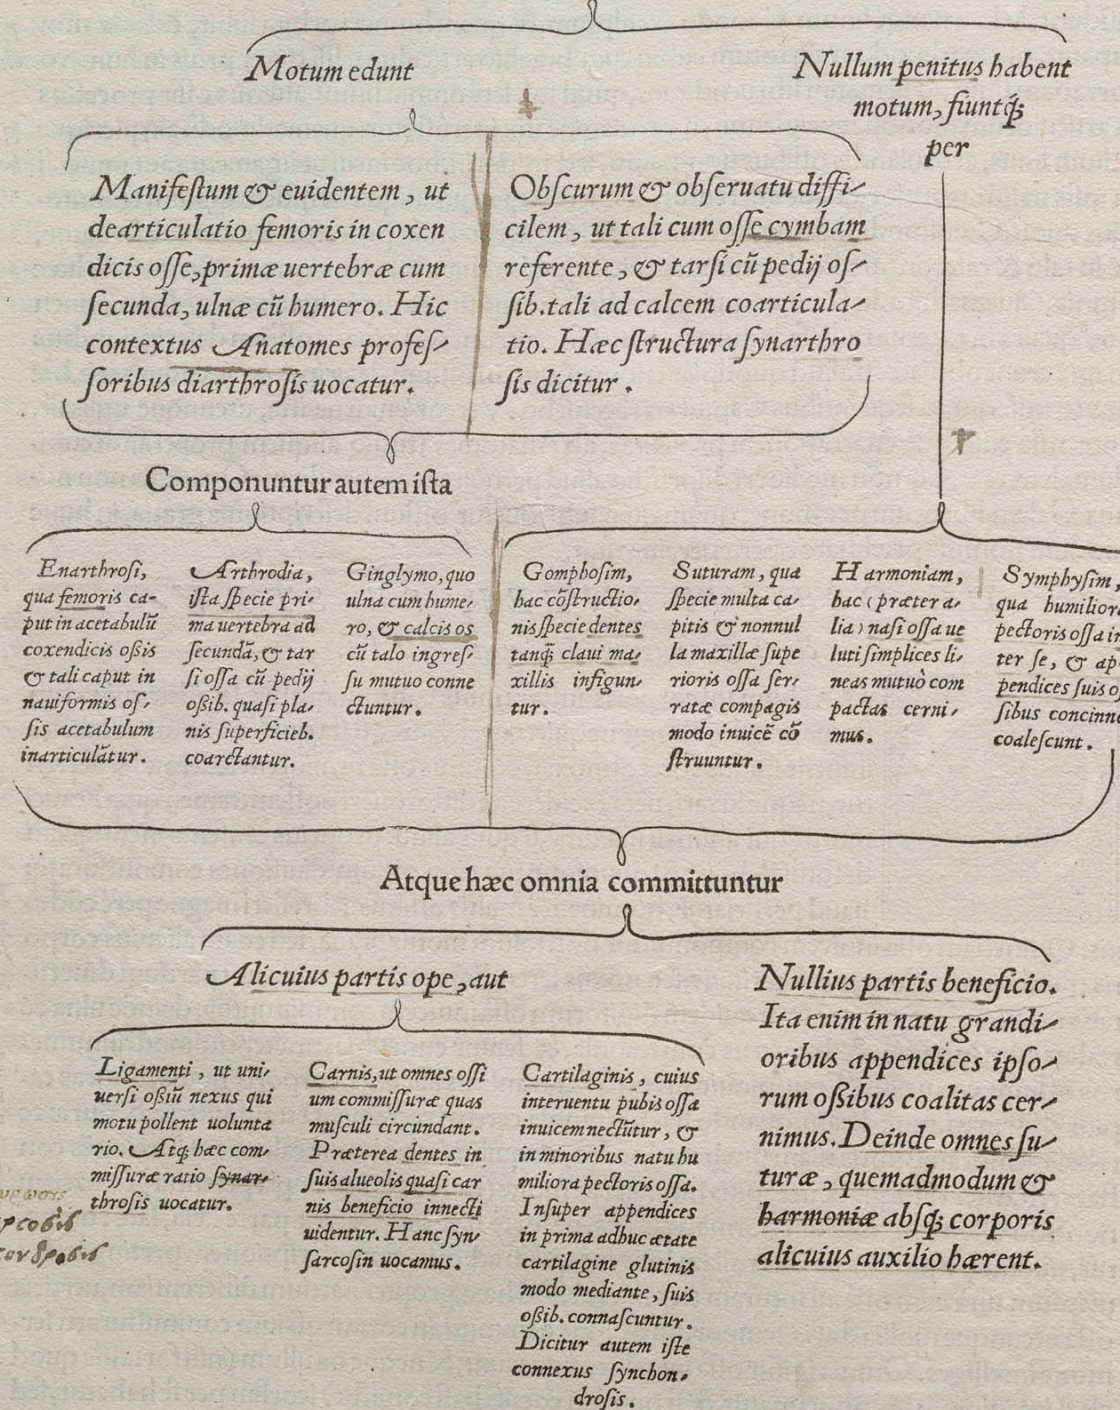 Motum edunt
Nullum penitus habent
motum, fiuntq́ꝫ
per
Manifeſtum & euidentem, ut
dearticulatio femoris in coxen
dicis oſſe, primæ uertebræ cum
ſecunda, ulnæ cū humero. Hic
contextus Anatomes profeſ-
ſoribus diarthroſis uocatur.
Obſcurum & obſeruatu diffi-
cilem, ut tali cum oſſe cymbam
referente, & tarſi cū pedij oſ-
ſib. tali ad calcem coarticula-
tio. Hæc ſtructura ſynarthro
ſis dicitur.
Componuntur autem iſta
Enarthroſi,
qua femoris ca-
put in acetabulū
coxendicis oßis
& tali caput in
nauiformis oſ-
ſis acetabulum
inarticulātur.
Arthrodia,
iſta ſpecie pri-
ma uertebra ad
ſecundā, & tar
ſi oſſa cū pedij
oßib. quaſi pla-
nis ſuperficieb.
coarctantur.
Ginglymo, quo
ulna cum hume-
ro, & calcis os
cū talo ingreſ-
ſu mutuo conne
ctuntur.
Gomphoſim,
hac cōſtructio-
nis ſpecie dentes
tanq̄ claui ma-
xillis infigun-
tur.
Suturam, qua
ſpecie multa ca-
pitis & nonnul
la maxillæ ſupe
rioris oſſa ſer-
ratæ compagis
modo inuicē cō
ſtruuntur.
Harmoniam,
hac (præter a-
lia) naſi oſſa ue
luti ſimplices li-
neas mutuò com
pactas cerni-
mus.
Symphyſim,
qua humilior
pectoris oſſa in
ter ſe, & ap
pendices ſuis oſ
ſibus concinn
coaleſcunt.
Atque hæc omnia committuntur
Alicuius partis ope, aut
Nullius partis beneficio.
Ita enim in natu grandi-
oribus appendices ipſo-
rum oßibus coalitas cer-
nimus. Deinde omnes ſu-
turæ, quemadmodum &
harmoniæ abſq́ꝫ corporis
alicuius auxilio hærent.
Ligamenti, ut uni-
uerſi oßiū nexus qui
motu pollent uolunta
rio. Atq́ꝫ hæc com-
miſſuræ ratio ſynar-
throſis uocatur.
Carnis, ut omnes oſſi
um commiſſuræ quas
muſculi circundant.
Præterea dentes in
ſuis alueolis quaſi car
nis beneficio innecti
uidentur. Hanc ſyn-
ſarcoſin uocamus.
Cartilaginis, cuius
interuentu pubis oſſa
inuicem nectūtur, &
in minoribus natu hu
miliora pectoris oſſa.
Inſuper appendices
in prima adhuc ætate
cartilagine glutinis
modo mediante, ſuis
oßib. connaſcuntur.
Dicitur autem iſte
connexus ſynchon-
droſis.